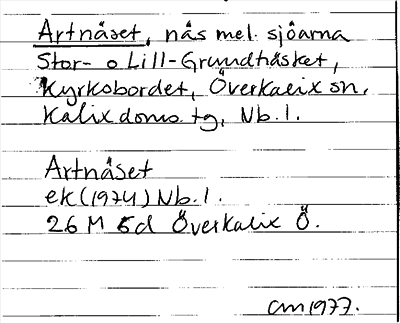 Artnäset, näs mel. sjöarna
Stor- o Lill-Grundträsket,
Kyrkobordet, Överkalix sn,
Kalix doms tg, Nb. l.
Artnäset
ek (1974) Nb. l.
26 M 5d Överkalix Ö.
am 1977.